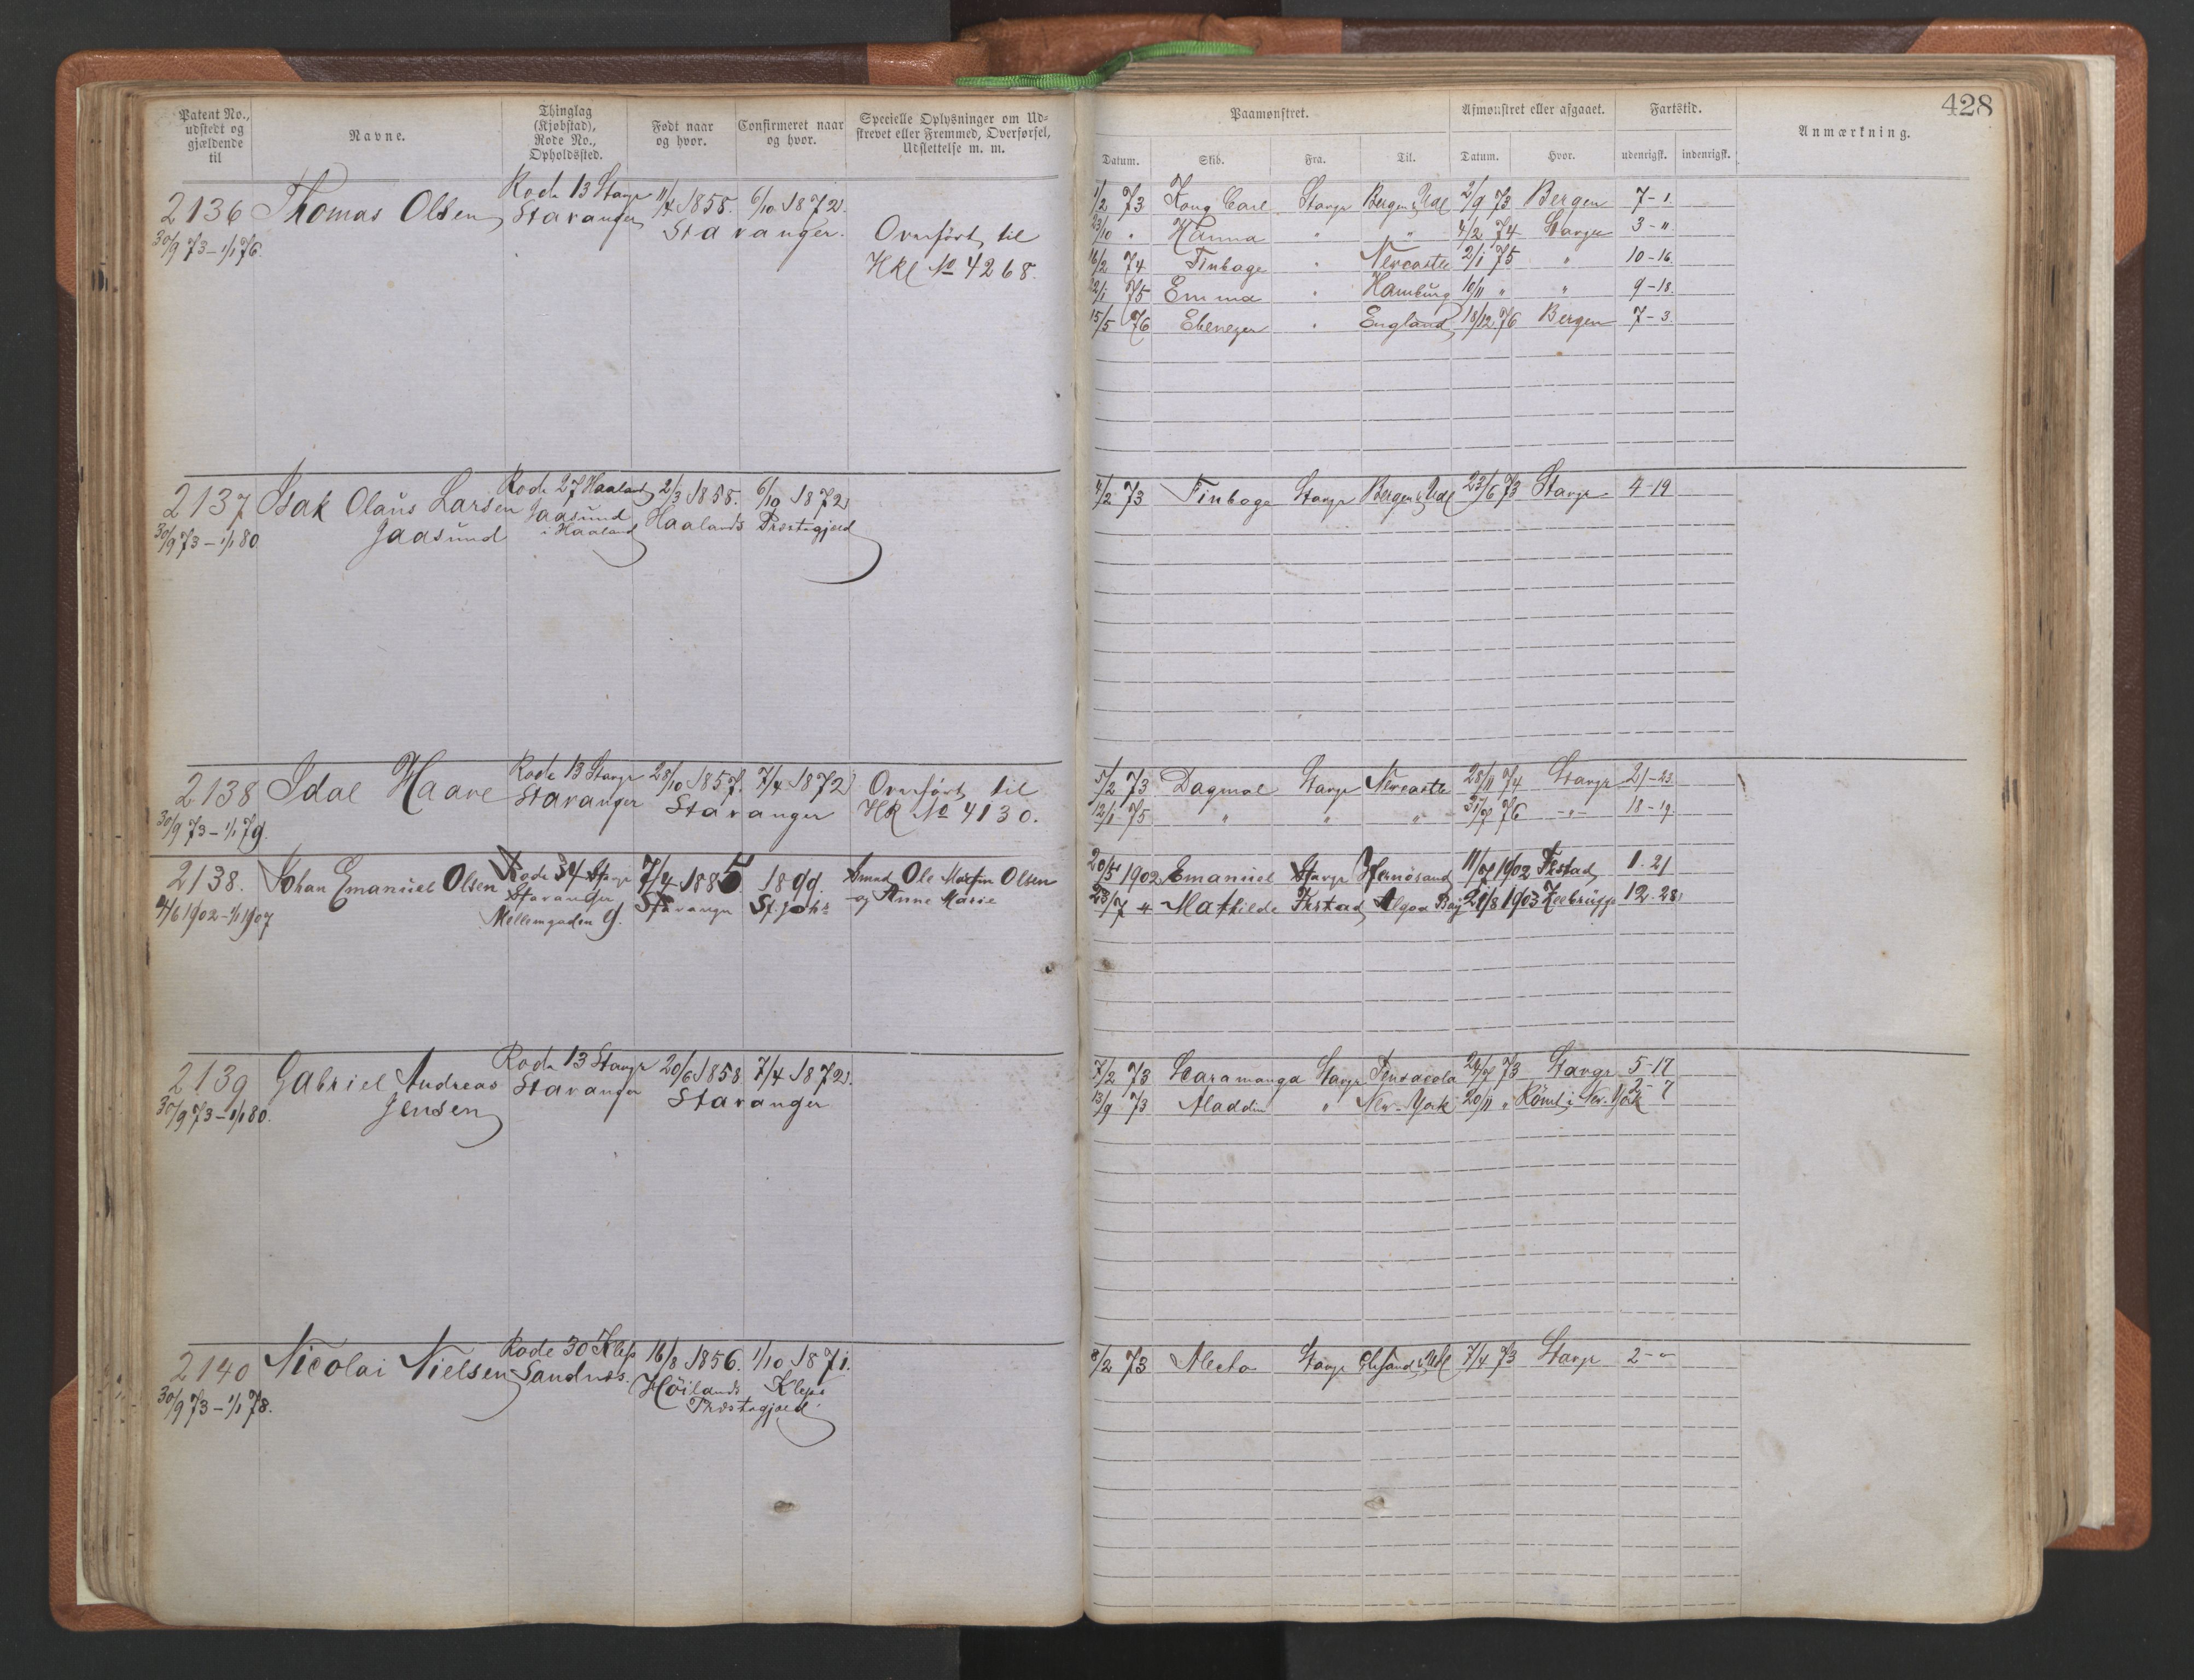 Patent No., udstedt og gjældende til
Navne.
Thinglag (Kjøbstad), Rode No., Opholdssted.
Født naar og hvor.
Confirmeret naar og hvor.
Specielle Oplysninger om Udskrevet eller Fremmed, Overførsel, Udslettelse m. m.
Paamønstret.
Afmønstret eller afgaaet.
Fartstid.
Anmærkning.
428
Datum. Skib. Fra. Til. Datum. Hvor. udenrigsk. indenrigsk.
2136 Thomas Olsen Rode 13 Stavgr 11/4 1858. 6/10 1872.
Stavanger Stavanger.
30/9 73 – 1/1 76.
Overført til
HRl No 4268.
1/2 73 Kong Carl Stavgr Bergen & Udl 2/9 73 Bergen 7 – 1.
23/10 " Hanna " " 4/2 74 Stavgr 3 – "
16/2 74 Finboge " Newcastle 2/1 75 " 10 – 16.
22/1 75 Emma " Hamburg 10/11 " " 9 – 18.
15/5 76 Ebenezer " England 18/12 76 Bergen 7 – 3.
2137 Isak Olaus Larsen Rode 27 Haaland 2/3 1858. 6/10 1872
Jaasund Jaasund i Haaland Haalands Præstegjæld
30/9 73 – 1/1 80
4/2 73 Finboge Stavgr Bergen & Udl 23/6 73 Stavgr 4 – 19
2138 Idal Haave Rode 13 Stavgr 28/10 1857. 7/4 1872
Stavanger Stavanger
30/9 73 – 1/1 79.
Overført til
HR No 4130.
5/2 73 Dagmal Stavgr Newcastle 28/11 74 Stavgr 21 – 23.
12/1 75 " " " 31/7 76 – " – 18 – 19.
2138. Johan Emanuel Olsen Rode 34 Stavgr 7/4 1885. 1899.
Stavanger Stavanger St. Johs
Møllemgaden 9.
4/6 1902 – 1/1 1907
Smed Ole Martin Olsen
og Anne Marie
20/5 1902 Emanuel Stavgr Hernösand 11/7 1902 Fkstad 1. 21
23/7 " Mathilde Fkstad Algoa Bay 21/8 1903 Zeebrügge 12. 28
2139 Gabriel Andreas Rode 13 Stavgr 20/6 1858 7/4 1872.
Jensen Stavanger Stavanger
30/9 73 – 1/1 80.
7/2 73 Caramanga Stavgr Pensacola 24/7 73 Stavgr 5 – 17
13/9 73 Aladdin " New-York 20/11 " Römt i New-York 2 – 7
2140 Nicolai Nielsen Rode 30 Klep 16/8 1856. 1/10 1871.
Sandnæs. Höilands Kleps
Præstegjæld
30/9 73 – 1/1 78.
8/2 73 Alecto Stavgr & Udl 7/4 73 Stavgr 2 – "